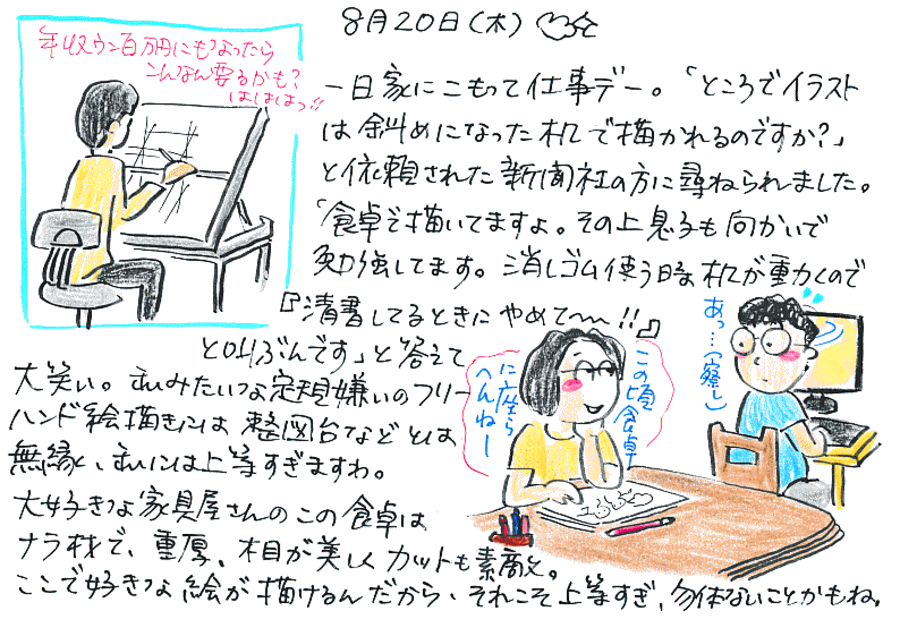 8月20日(木)
年収ウン百万円にもなったら
こんなん要るかも?
ははは っ!!
一日家にこもって仕事デー。「ところでイラスト
は斜めになった机で描かれるのですか?」
と依頼された新聞社の方に尋ねられました。
「食卓で描いてますよ。その上息子も向かいで
勉強してます。消しゴム使う時机が動くので
『清書してるときにやめて〜!!』
と叫ぶんです」と答えて
大笑い。私みたいな定規嫌いのフリー
ハンド絵描きには製図台などとは
無縁、私には上等すぎますわ。
大好きな家具屋さんのこの食卓は
ナラ材で、重厚、木目が美しくカットも素敵。
ここで好きな絵が描けるんだから、それこそ上等すぎ、勿体ないことかもね。
この頃食卓
に座ら
へんねー
あっ…(察し)